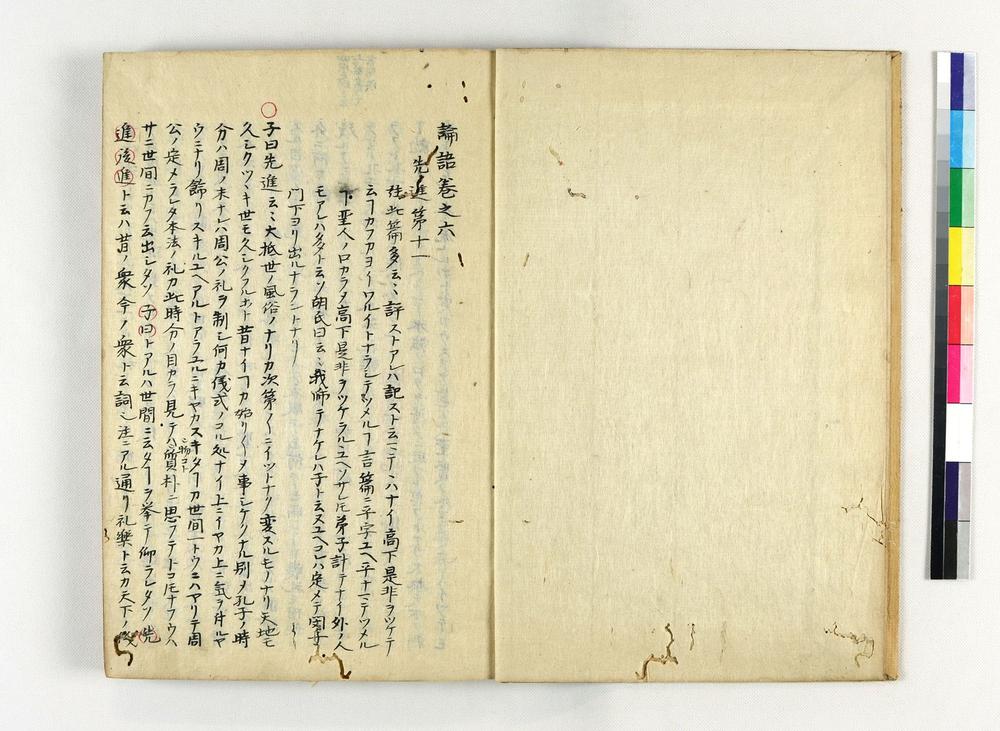 論語巻之六
先進第十一
往此篇多云〻評ストアレハ記スト云テハナイ高下是非ヲツケテ
云フカフカヨイワルイトナラシテツメルヿ言篇ニ平字ユヘ平ナニテツメル
下聖人ノ口カラヌ高下是非ヲツケラルユヘソサレ𪜈弟子計テナイ外ノ人
モアレハ多タト云ソ胡氏曰云〻我師テナケレハ子トハ云ヌユヘコレハ定メテ閔子
門下ヨリ出ルナラントナリ
子曰先進云〻大抵世ノ風俗ノナリカ次第〱ニイツトナク変スルモノナリ天地モ
久シクツヽキ世モ久シクフルホト昔ナイヿカ始リ〱メ事シケクナル別メ孔子ノ時
分ハ周ノ末ナレハ周公ノ礼ヲ制シ何カ儀式ノコル処ナイ上ニイヤカ上ニ気ヲ付ルヤ
ウニナリ飾リスキルユヘアルトアラユルニキヤカスキタヿカ世間一トウニハヤリテ周
公ノ定メラレタ本法ノ礼カ此時分ノ目カラ見テハ質朴ニ思フテトコ𪜈ナフウハ
サニ世間ニカフ云出シタソ子曰トアルハ世間ニ云タヿヲ挙テ仰ラレタソ先
進後進ト云ハ昔ノ衆今ノ衆ト云詞注ニアル通リ礼樂ト云カ天下ノ